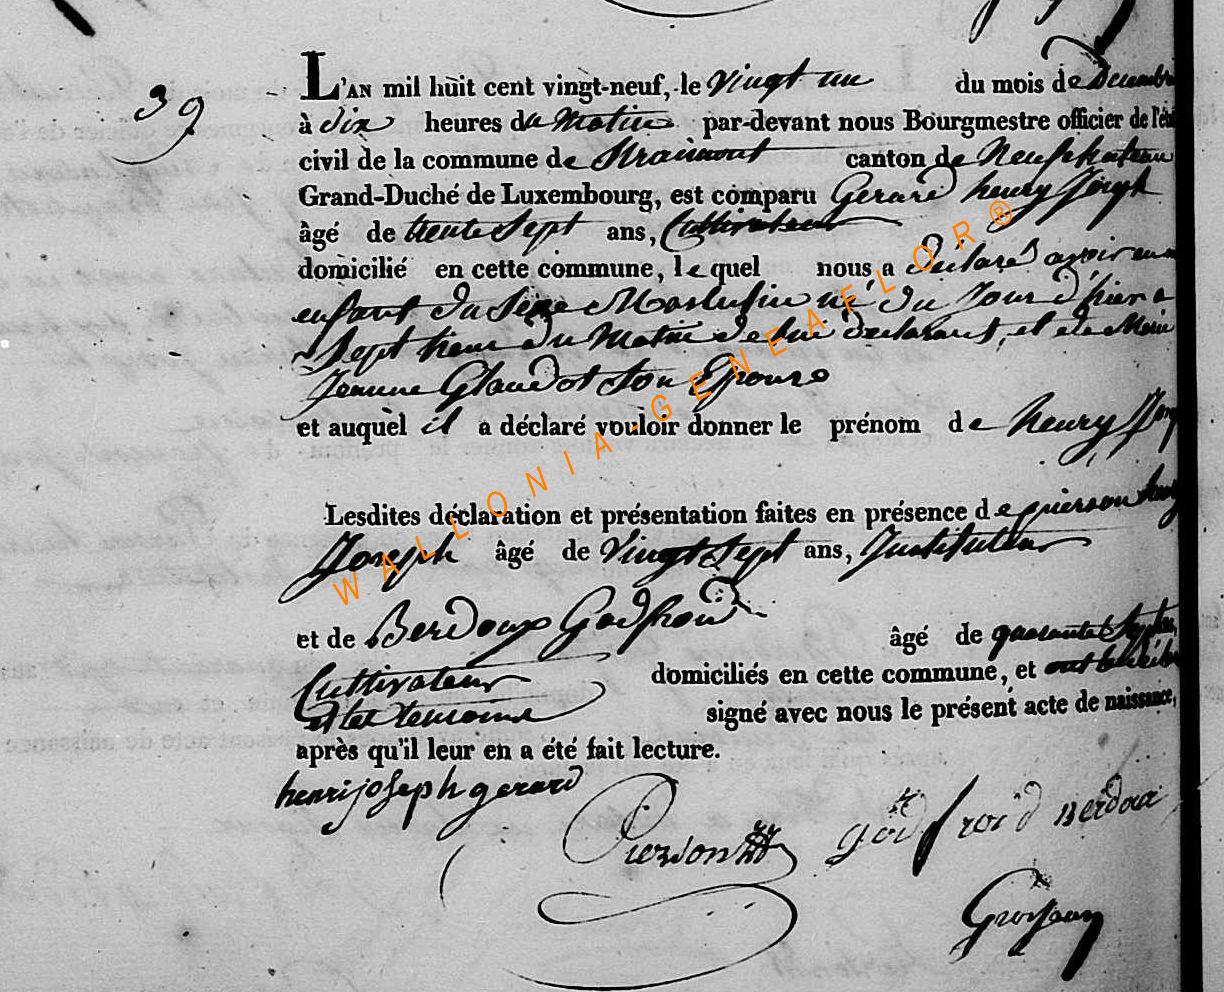 39
L'AN mil huit cent vingt-neuf, le vingt un du mois de Decembre
à dix heures du Matin par-devant nous Bourgmestre officier de l'éta
civil de la commune de Straimont canton de Neufchateau
Grand-Duché de Luxembourg, est comparu Gerard henry Joseph
âgé de trente Sept ans, Cultivateur
domicilié en cette commune, lequel nous a déclaré avoir eu un
enfant du Sexe Masculin né du Jour d'hier a
Sept heur du Matin de lui déclarant, et de Marie
Jeanne Glaudot Son Epouse
et auquel il a déclaré vouloir donner le prénom de henry Jos
Lesdites déclaration et présentation faites en présence de pierson henry
Joseph âgé de Vingt Sept ans, Instituteur
et de Berdoux Godfroid âgé de quarante Sept ans,
Cultivateur domiciliés en cette commune, et ont
et les temoins signé avec nous le présent acte de naissance,
après qu'il leur en a été fait lecture.
henri joseph gerard
Pierson
godfroid Berdoux
Grosjean
WALLONIA-GENEAFLOR®